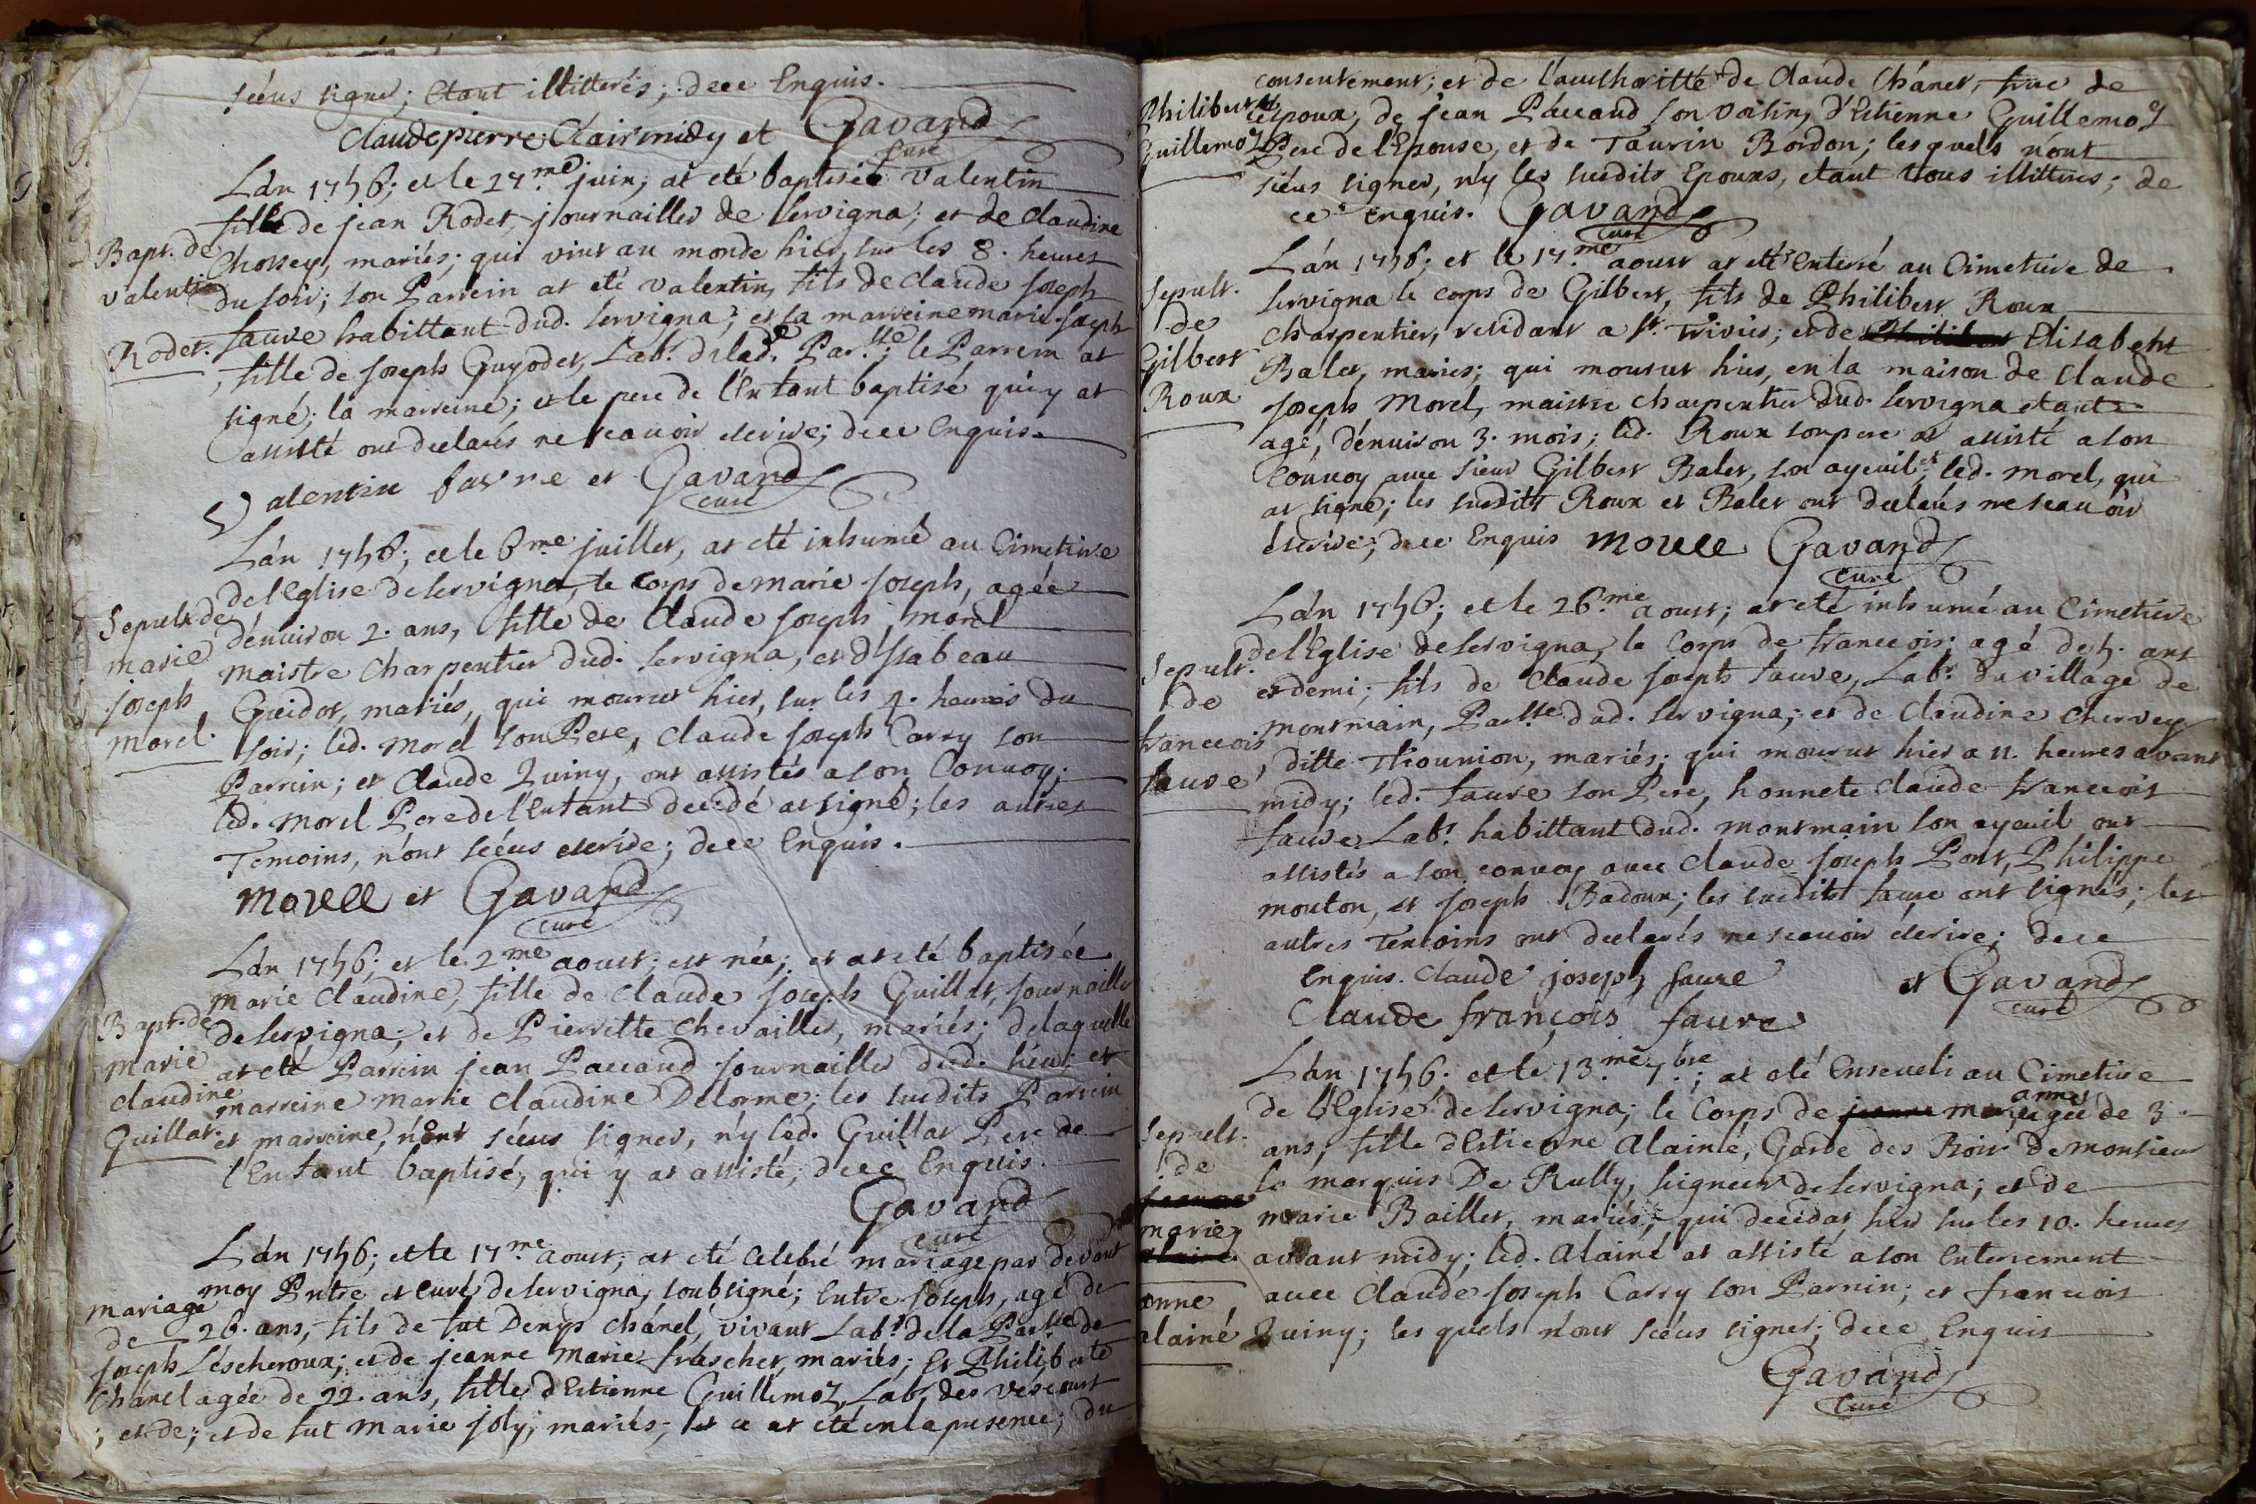 scéus signer; etant illitterés; de ce Enquis.
Claude pierre Clairmidy et Gavand
curé
L'an 1756; et le 27.me juin; at eté baptisée valentin
fille de jean Rodet, journaillier de Servigna; et de Claudine
Bapt. de
valentin
Rodet.
Chossey, mariés; qui vint au monde hier, sur les 8. heures
du soir; son Parrein at eté valentin, fils de Claude Joseph
fauve habittant dud. Servigna; et sa marreine marie Joseph
fille de Joseph Guyodet, Lab.r de lad.e Par.sse; le Parrein at
signé; la marreine; et le pere de l'Enfant baptisé qui y at
assisté ont declarés ne scavoir escrire; de ce Enquis.
Valentin favre et Gavand
curé
L'an 1756; et le 6.me juillet, at eté inhumé au Cimetiere
de l'Eglise de Servigna, le Corps de marie Joseph, agée
Sepult. de
marie
Joseph
morel.
d'environ 2. ans, fille de Claude Joseph morel
maistre Charpentier dud. Servigna, et d'Isabeau
Guidot, mariés, qui mourut hier, sur les 4. heures du
soir; led. morel son Pere, Claude Joseph Carry son
Parrein; et Claude Quiny, ont assistés a son Convoy;
led. morel Pere de l'Enfant decedé at signé; les autres
Temoins, n'ont scéus escrire; de ce Enquis.
morel et Gavand
curé
L'an 1756; et le 2.me aoust; est née; et at eté baptisée
marie Claudine, fille de Claude Joseph Guillat, journaillier
Bapt. de
marie
claudine
Guillat.
de Servigna; et de Pierrette Chevaillier, mariés; de laquelle
at eté Parrein jean Paccaud journaillier dud. lieu; et
marreine marie Claudine Delorme; les susdits Parrein
et marreine, n'ont scéus signer, n'y led. Guillat Pere de
l'Enfant baptisé, qui y at assisté; de ce Enquis.
Gavand
curé
L'an 1756; et le 17.me aoust; at eté celebré mariage par devant
moy Prêtre et curé de Servigna, soubsigné; Entre Joseph, agé de
mariage
de
Joseph
Chanel
26. ans, fils de fut Denys Chánel, vivant Lab.r de la Par.sse de
Léscheroux; et de jeanne marie frascher, mariés; Et Philiberte
agée de 22. ans, fille d'Estienne Guillemoz, Lab.r des vescourt
; et de; et de fut marie joly, mariés; et ce at eté en la presence; du
consentement; et de l'authoritté de Claude Chánel, frere de
Philiberte
Guillemoz
l'Epoux, de jean Páccaud son voisin, d'Estienne Guillemoz
Pere de l'Epouse, et de Taurin Bordon; les quels n'ont
scéus signer, n'y les susdits Epoux, etant tous illitterés; de
ce Enquis. Gavand
curé
L'án 1756; et le 17.me aoust at eté Enterré au Cimetiere de
Sepult.
de
Gilbert
Roux
Servigna le corps de Gilbert, fils de Philibert Roux
Charpentier, residant a St. Trivier; et de Elisabeth
Balet, mariés; qui mourut hier, en la maison de Claude
Joseph Morel, maistre Charpentier dud. Servigna etant
agé, d'environ 3. mois; led. Roux son pere at assisté a son
Convoy avec sieur Gilbert Balet, son ayeuil, et led. morel, qui
at signé; les susdits Roux et Balet ont declarés ne scavoir
escrire; de ce Enquis morel Gavand
curé
L'án 1756; et le 26.me aoust; at eté inhumé au Cimetiere
Sepult.
de
francois
fauve
de l'Eglise de Servigna, le Corps de francois; agé de 5. ans
et demi; fils de Claude Joseph fauve, Lab.r du village de
montmain, Par.sse dud. Servigna; et de Claudine Chervey
ditte Thounion, mariés; qui mourut hier a 11. heures avant
midy; led. fauve son Pere, honnete Claude francois
fauve Lab.r habittant dud. montmain son ayeuil ont
assistés a son convoy avec Claude Joseph Pont, Philippe
mouton, et Joseph Badoux; les susdits fauve ont signés; les
autres Temoins ont declarés ne scavoir escrire; de ce
Enquis. Claude joseph faure et Gavand
curé
Claude françois faure
L'an 1756; et le 13.me 7.bre; at eté Enseveli au Cimetiere
de l'Eglise de Servigna; le Corps de jeanne marie anne agée de 3.
Sepult.
de
jeanne
marie
alainé
anne
alainé
ans, fille d'Estienne Alainé, Garde des Bois de monsieur
le marquis De Rully, seigneur de Servigna; et de
marie Baillet, mariés; qui decedat hier sur les 10. heures
avant midy; led. Alainé at assisté a son Enterrement
avec Claude Joseph Carry son Parrein; et francois
Quiny; les quels n'ont scéus signer; de ce Enquis
Gavand
curé